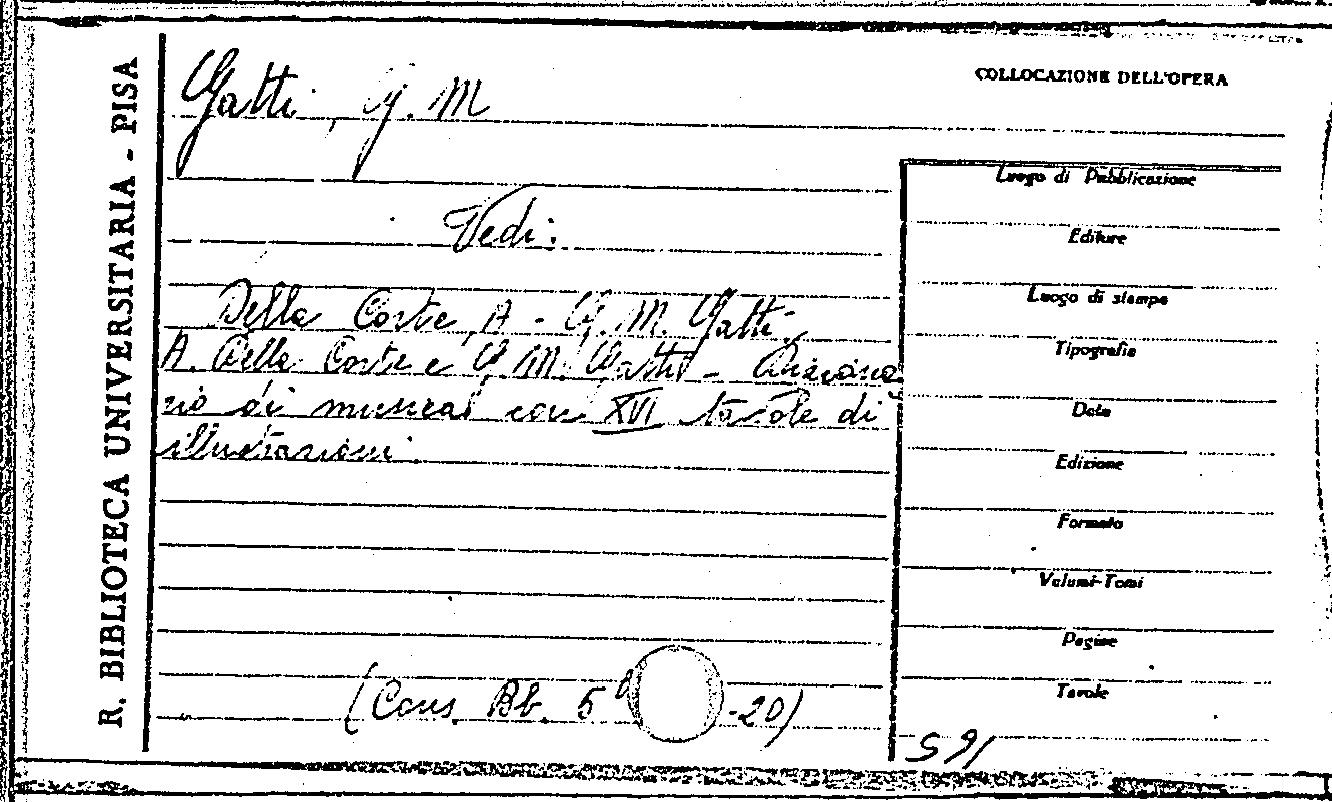 R. BIBLIOTECA UNIVERSITARIA - PISA
COLLOCAZIONE DELL'OPERA
Gatti, G. M
Vedi:
Della Corte, A - G. M. Gatti.
A. Della Corte e G. M. Gatti - Diziona
rio di musica con XVI tavole di
illustrazioni.
(Cons. Bb. 5 -20)
Luogo di Pubblicazione
Editore
Luogo di stampa
Tipografia
Data
Edizione
Formato
Volumi-Tomi
Pagine
Tavole